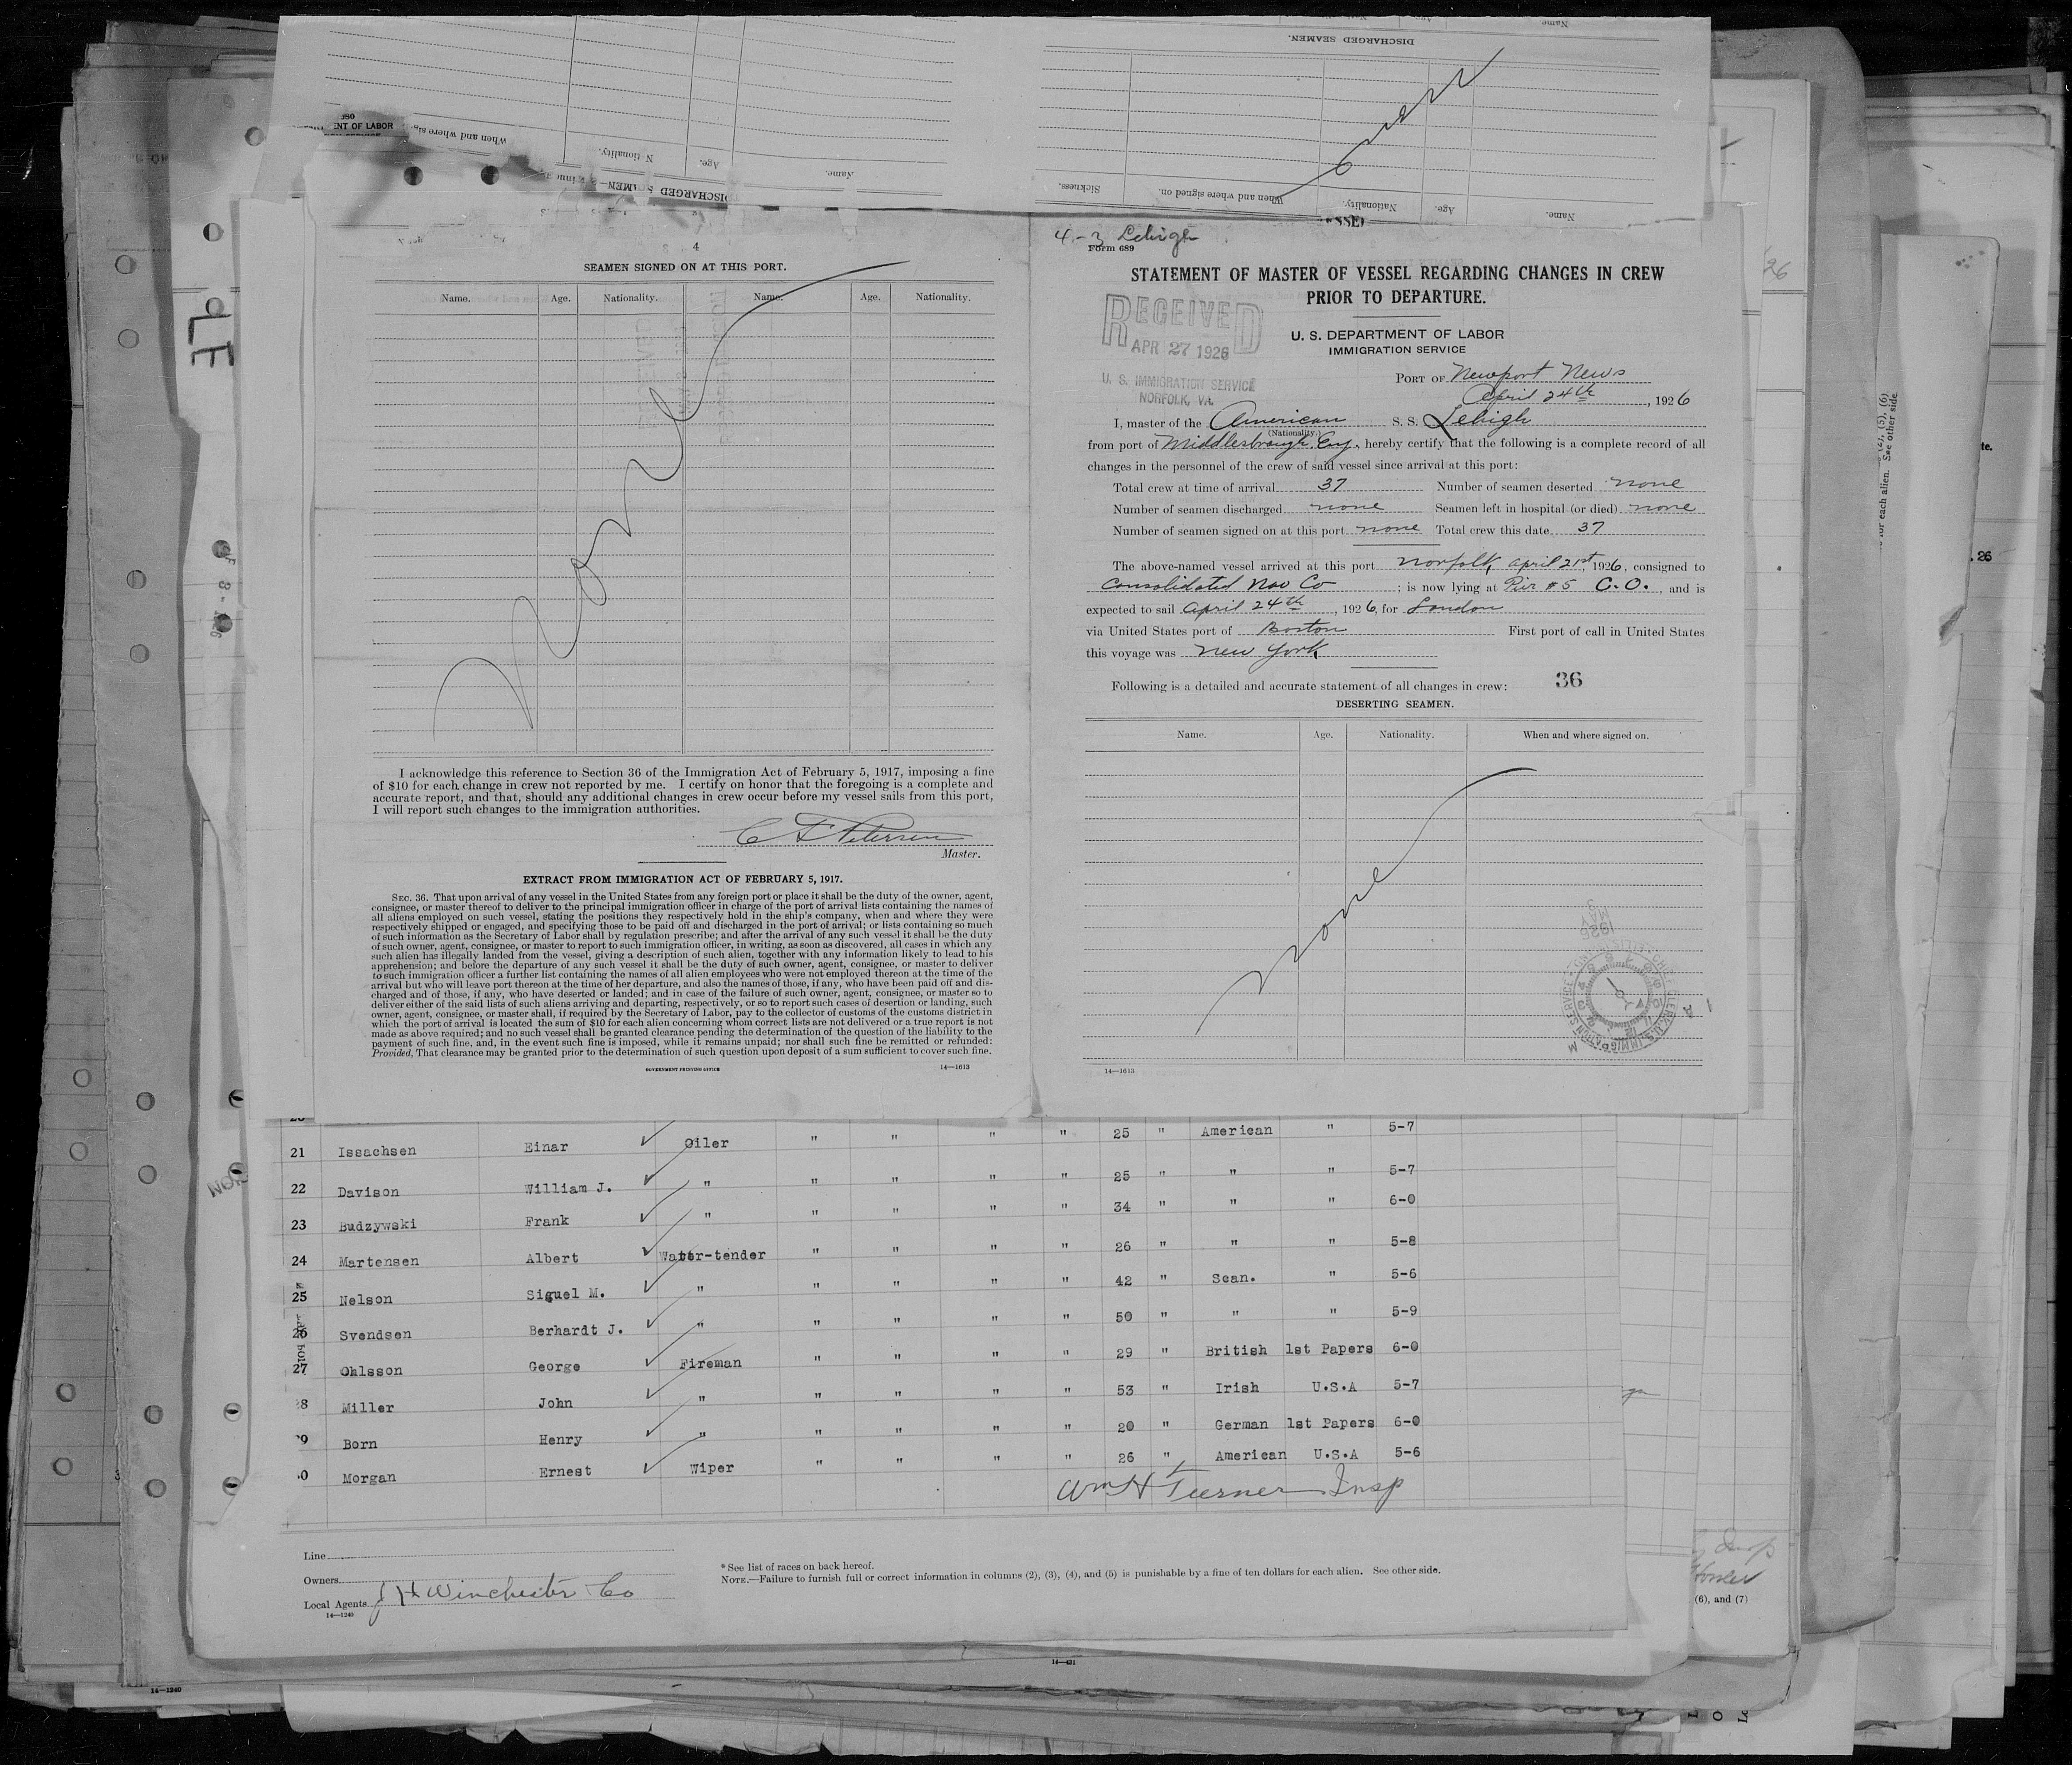 Name.
DISCHARGED SEAMEN.
none
Sickness.
When and where signed on.
Nationality.
Age.
Name.
ENT OF LABOR
Age.
Name.
4
SEAMEN SIGNED ON AT THIS PORT.
Name. Age. Nationality. Name. Age. Nationality.
None
I acknowledge this reference to Section 36 of the Immigration Act of February 5, 1917, imposing a fine
of $10 for each change in crew not reported by me. I certify on honor that the foregoing is a complete and
accurate report, and that, should any additional changes in crew occur before my vessel sails from this port,
I will report such changes to the immigration authorities.
C F Petersen
Master.
EXTRACT FROM IMMIGRATION ACT OF FEBRUARY 5, 1917.
SEC. 36. That upon arrival of any vessel in the United States from any foreign port or place it shall be the duty of the owner, agent,
consignee, or master thereof to deliver to the principal immigration officer in charge of the port of arrival lists containing the names of
all aliens employed on such vessel, stating the positions they respectively hold in the ship's company, when and where they were
respectively shipped or engaged, and specifying those to be paid off and discharged in the port of arrival; or lists containing so much
of such information as the Secretary of Labor shall by regulation prescribe; and after the arrival of any such vessel it shall be the duty
of such owner, agent, consignee, or master to report to such immigration officer, in writing, as soon as discovered, all cases in which any
such alien has illegally landed from the vessel, giving a description of such alien, together with any information likely to lead to his
apprehension; and before the departure of any such vessel it shall be the duty of such owner, agent, consignee, or master to deliver
to such immigration officer a further list containing the names of all alien employees who were not employed thereon at the time of the
arrival but who will leave port thereon at the time of her departure, and also the names of those, if any, who have been paid off and dis-
charged and of those, if any, who have deserted or landed; and in case of the failure of such owner, agent, consignee, or master so to
deliver either of the said lists of such aliens arriving and departing, respectively, or so to report such cases of desertion or landing, such
owner, agent, consignee, or master shall, if required by the Secretary of Labor, pay to the collector of customs of the customs district in
which the port of arrival is located the sum of $10 for each alien concerning whom correct lists are not delivered or a true report is not
made as above required; and no such vessel shall be granted clearance pending the determination of the question of the liability to the
payment of such fine, and, in the event such fine is imposed, while it remains unpaid; nor shall such fine be remitted or refunded:
Provided, That clearance may be granted prior to the determination of such question upon deposit of a sum sufficient to cover such fine.
GOVERNMENT PRINTING OFFICE 14—1613
4-3 Lehigh
Form 689
STATEMENT OF MASTER OF VESSEL REGARDING CHANGES IN CREW
PRIOR TO DEPARTURE.
RECEIVED
APR 27 1926
U. S. IMMIGRATION SERVICE
NORFOLK, VA.
U. S. DEPARTMENT OF LABOR
IMMIGRATION SERVICE
PORT OF Newport News
April 24th, 1926
I, master of the American S. S. Lehigh
(Nationality.)
from port of Middlesbrough. Eng, hereby certify that the following is a complete record of all
changes in the personnel of the crew of said vessel since arrival at this port:
Total crew at time of arrival 37 Number of seamen deserted none
Number of seamen discharged none Seamen left in hospital (or died) none
Number of seamen signed on at this port none Total crew this date 37
The above-named vessel arrived at this port Norfolk, April 21st, 1926, consigned to
Consolidated Nav Co; is now lying at Pier #5 C.O., and is
expected to sail April 24th, 1926, for London
via United States port of Boston First port of call in United States
this voyage was New York
Following is a detailed and accurate statement of all changes in crew: 36
DESERTING SEAMEN.
Name. Age. Nationality. When and where signed on.
none
14—1613
21 Issachsen Einar Oiler " " " " 25 " American " 5-7
22 Davison William J. " " " " " 25 " " " 5-7
23 Budzywski Frank " " " " " 34 " " " 6-0
24 Martensen Albert Water-tender " " " " 26 " " " 5-8
25 Nelson Siguel M. " " " " " 42 " Scan. " 5-6
26 Svendsen Berhardt J. " " " " " 50 " " " 5-9
27 Ohlsson George Fireman " " " " 29 " British 1st Papers 6-0
8 Miller John " " " " " 53 " Irish U.S.A 5-7
9 Born Henry " " " " " 20 " German 1st Papers 6-0
0 Morgan Ernest Wiper " " " " 26 " American U.S.A 5-6
Wm H Turner Insp
Line
Owners
Local Agents J H Winchester Co
14—1240
* See list of races on back hereof.
NOTE.—Failure to furnish full or correct information in columns (2), (3), (4), and (5) is punishable by a fine of ten dollars for each alien. See other side.
(6), and (7)
14—1240
14—431